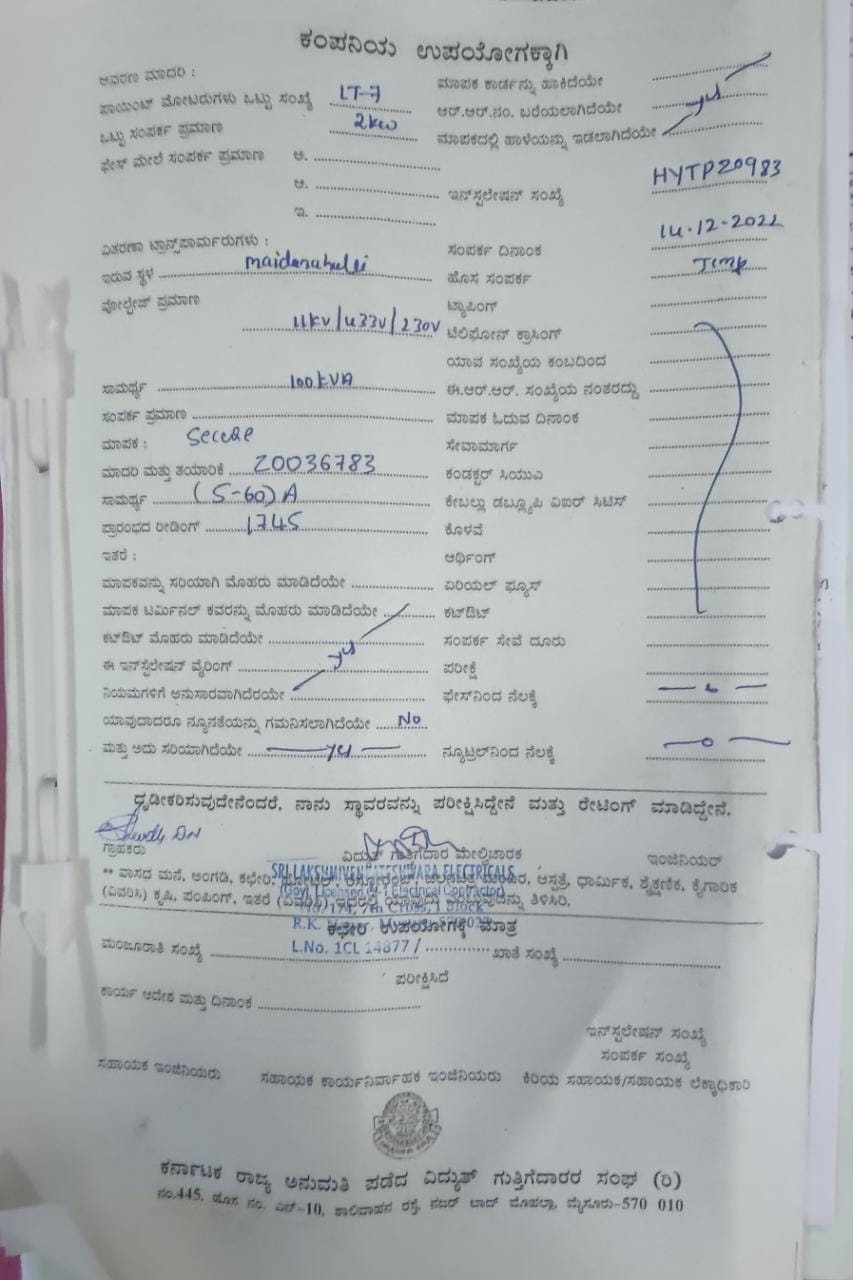 ಕಂಪನಿಯ ಉಪಯೋಗಕ್ಕಾಗಿ
ಆವರಣ ಮಾದರಿ : ಮಾಪಕ ಕಾರ್ಡನ್ನು ಹಾಕಿದೆಯೇ
ಪಾಯಿಂಟ್ ಮೋಟರುಗಳು ಒಟ್ಟು ಸಂಖ್ಯೆ LT-7 ಆರ್.ಆರ್.ನಂ. ಬರೆಯಲಾಗಿದೆಯೇ
ಒಟ್ಟು ಸಂಪರ್ಕ ಪ್ರಮಾಣ 2kw ಮಾಪಕದಲ್ಲಿ ಹಾಳೆಯನ್ನು ಇಡಲಾಗಿದೆಯೇ
ಫೇಸ್ ಮೇಲೆ ಸಂಪರ್ಕ ಪ್ರಮಾಣ ಅ.
ಆ. ಇನ್‌ಸ್ಟಲೇಷನ್ ಸಂಖ್ಯೆ HYTP20983
ಇ.
ವಿತರಣಾ ಟ್ರಾನ್ಸ್‌ಪಾರ್ಮರುಗಳು : ಸಂಪರ್ಕ ದಿನಾಂಕ 14-12-2022
ಇರುವ ಸ್ಥಳ ಹೊಸ ಸಂಪರ್ಕ Temp
ವೋಲ್ಟೇಜ್ ಪ್ರಮಾಣ ಟ್ಯಾಪಿಂಗ್
11kV/433V/230V ಟೆಲಿಫೋನ್ ಕ್ರಾಸಿಂಗ್
ಯಾವ ಸಂಖ್ಯೆಯ ಕಂಬದಿಂದ
ಸಾಮರ್ಥ್ಯ 100kVA ಈ.ಆರ್.ಆರ್. ಸಂಖ್ಯೆಯ ನಂತರದ್ದು
ಸಂಪರ್ಕ ಪ್ರಮಾಣ ಮಾಪಕ ಓದುವ ದಿನಾಂಕ
ಮಾಪಕ : Secure ಸೇವಾಮಾರ್ಗ
ಮಾದರಿ ಮತ್ತು ತಯಾರಿಕೆ 20036783 ಕಂಡಕ್ಟರ್ ಸಿಯುಎ
ಸಾಮರ್ಥ್ಯ (5-60)A ಕೇಬಲ್ಲು ಡಬ್ಲ್ಯೂಪಿ ವಿಐಆರ್ ಸಿಟಿಸ್
ಪ್ರಾರಂಭದ ರೀಡಿಂಗ್ 1745 ಕೊಳವೆ
ಇತರೆ : ಆರ್ಥಿಂಗ್
ಮಾಪಕವನ್ನು ಸರಿಯಾಗಿ ಮೊಹರು ಮಾಡಿದೆಯೇ ಏರಿಯಲ್ ಫ್ಯೂಸ್
ಮಾಪಕ ಟರ್ಮಿನಲ್ ಕವರನ್ನು ಮೊಹರು ಮಾಡಿದೆಯೇ ಕಟ್‌ಔಟ್
ಕಟ್‌ಔಟ್ ಮೊಹರು ಮಾಡಿದೆಯೇ ಸಂಪರ್ಕ ಸೇವೆ ದೂರು
ಈ ಇನ್‌ಸ್ಟಲೇಷನ್ ವೈರಿಂಗ್ ಪರೀಕ್ಷೆ
ನಿಯಮಗಳಿಗೆ ಅನುಸಾರವಾಗಿದೆರೆಯೇ ಫೇಸ್‌ನಿಂದ ನೆಲಕ್ಕೆ
ಯಾವುದಾದರೂ ನ್ಯೂನತೆಯನ್ನು ಗಮನಿಸಲಾಗಿದೆಯೇ No
ಮತ್ತು ಅದು ಸರಿಯಾಗಿದೆಯೇ ನ್ಯೂಟ್ರಲ್‌ನಿಂದ ನೆಲಕ್ಕೆ
ಧೃಡೀಕರಿಸುವುದೇನೆಂದರೆ, ನಾನು ಸ್ಥಾವರವನ್ನು ಪರೀಕ್ಷಿಸಿದ್ದೇನೆ ಮತ್ತು ರೇಟಿಂಗ್ ಮಾಡಿದ್ದೇನೆ.
ಗ್ರಾಹಕರು ವಿದ್ಯುತ್ ಗುತ್ತಿಗೆದಾರ ಮೇಲ್ವಿಚಾರಕ ಇಂಜಿನಿಯರ್
SRI LAKSHMIVENKATESHWARA ELECTRICALS
** ವಾಸದ ಮನೆ, ಅಂಗಡಿ, ಕಛೇರಿ, ಆಸ್ಪತ್ರೆ, ಧಾರ್ಮಿಕ, ಶೈಕ್ಷಣಿಕ, ಕೈಗಾರಿಕೆ
(Govt. Licensed Electrical Contractor)
(ವಿವರಿಸಿ) ಕೃಷಿ, ಪಂಪಿಂಗ್, ಇತರೆ (ವಿವರಿಸಿ) ಇದರಲ್ಲಿ ಯಾವುದು ಎಂಬುವುದನ್ನು ತಿಳಿಸಿರಿ.
7th Cross, 1 Block
ಕಛೇರಿ ಉಪಯೋಗಕ್ಕೆ ಮಾತ್ರ
L.No. 1CL 14877 /
ಮಂಜೂರಾತಿ ಸಂಖ್ಯೆ ಖಾತೆ ಸಂಖ್ಯೆ
ಪರೀಕ್ಷಿಸಿದೆ
ಕಾರ್ಯ ಆದೇಶ ಮತ್ತು ದಿನಾಂಕ
ಇನ್‌ಸ್ಟಲೇಷನ್ ಸಂಖ್ಯೆ
ಸಂಪರ್ಕ ಸಂಖ್ಯೆ
ಸಹಾಯಕ ಇಂಜಿನಿಯರು ಸಹಾಯಕ ಕಾರ್ಯನಿರ್ವಾಹಕ ಇಂಜಿನಿಯರು ಕಿರಿಯ ಸಹಾಯಕ/ಸಹಾಯಕ ಲೆಕ್ಕಾಧಿಕಾರಿ
ಕರ್ನಾಟಕ ರಾಜ್ಯ ಅನುಮತಿ ಪಡೆದ ವಿದ್ಯುತ್ ಗುತ್ತಿಗೆದಾರರ ಸಂಘ (ರಿ)
ನಂ.445, ಹೊಸ ನಂ. ಎನ್-10, ಶಾಲಿವಾಹನ ರಸ್ತೆ, ನಜರ್ ಬಾದ್ ಮೊಹಲ್ಲಾ, ಮೈಸೂರು-570 010